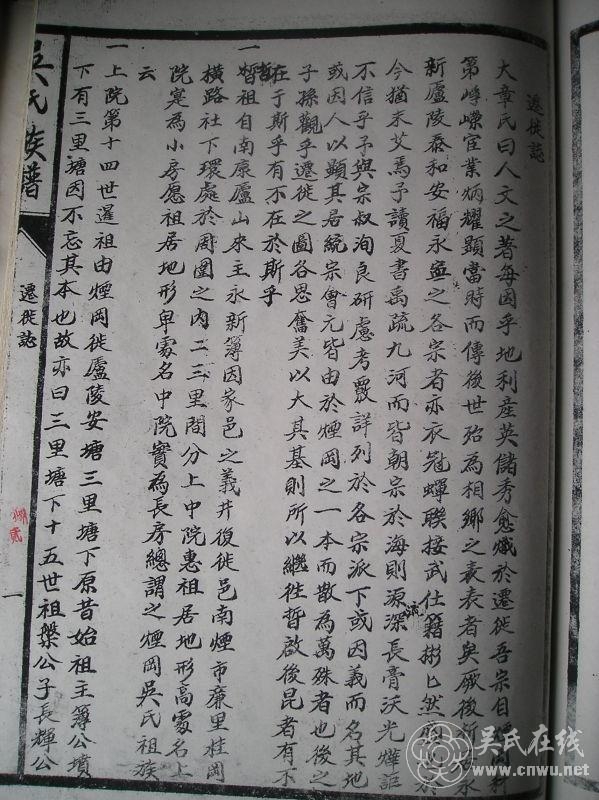 遷徙誌
大章氏曰人文之著每因乎地利產英儲秀愈熾於遷徙吾宗自煙岡科
第崢嶸宦業炳耀顯當時而傳後世殆為相鄉之表表者矣厥後所永
新廬陵泰和安福永盛之各宗者亦衣冠蟬聯接武仕籍彬匕然於
今猶未艾焉予讀夏書禹疏九河而皆朝宗於海則源深流長膏沃光燁詎
不信乎予與宗叔洵良研慮考覈詳列於各宗派下或因義而名其地
或因人以顯其居統宗會元皆由於煙岡之一本而散為萬殊者也後之
子孫觀乎遷徙之圖各思奮美以大其基則所以繼往哲啟後昆者有不
在于斯乎有不在於斯乎
一 哲祖自南康廬山來主永新簿因家邑之義井後徙邑南煙市廉里桂岡
橫路社下環處於周圍之內二三里間分上中院惠祖居地形高處名上
院寔為小房愿祖居地形卑處名中院實為長房總謂之煙岡吳氏祖族
云
一 上院第十四世暹祖由煙岡徙廬陵安塘三里塘下原昔始祖主簿公墳
下有三里塘因不忘其本也故亦曰三里塘下十五世祖槃公子長輝公
吳氏族譜
遷徙誌
一
吳氏在线
www.cnwu.net